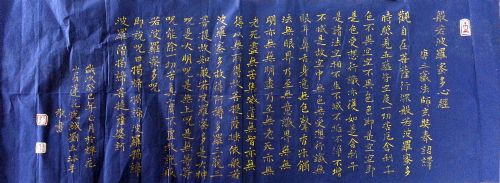 般若波羅蜜多心經
唐三藏法師玄奘奉詔譯
觀自在菩薩行深般若波羅蜜多
時照見五蘊皆空度一切苦厄舍利子
色不異空空不異色色即是空空即
是色受想行識亦復如是舍利子
是諸法空相不生不滅不垢不淨不增
不減是故空中無色無受想行識無
眼耳鼻舌身意無色聲香味觸
法無眼界乃至無意識界無無
明亦無無明盡乃至無老死亦無
老死盡無苦集滅道無智亦無
得以無所得故菩提薩埵依般若
波羅蜜多故得阿耨多羅三藐三
菩提故知般若波羅蜜多是大神
咒是大明咒是無上咒是無等等
咒能除一切苦真實不虛故說般
若波羅蜜多咒
即說咒曰揭諦揭諦波羅揭諦
波羅僧揭諦菩提薩婆訶
年正月
山居蓮花
敬書